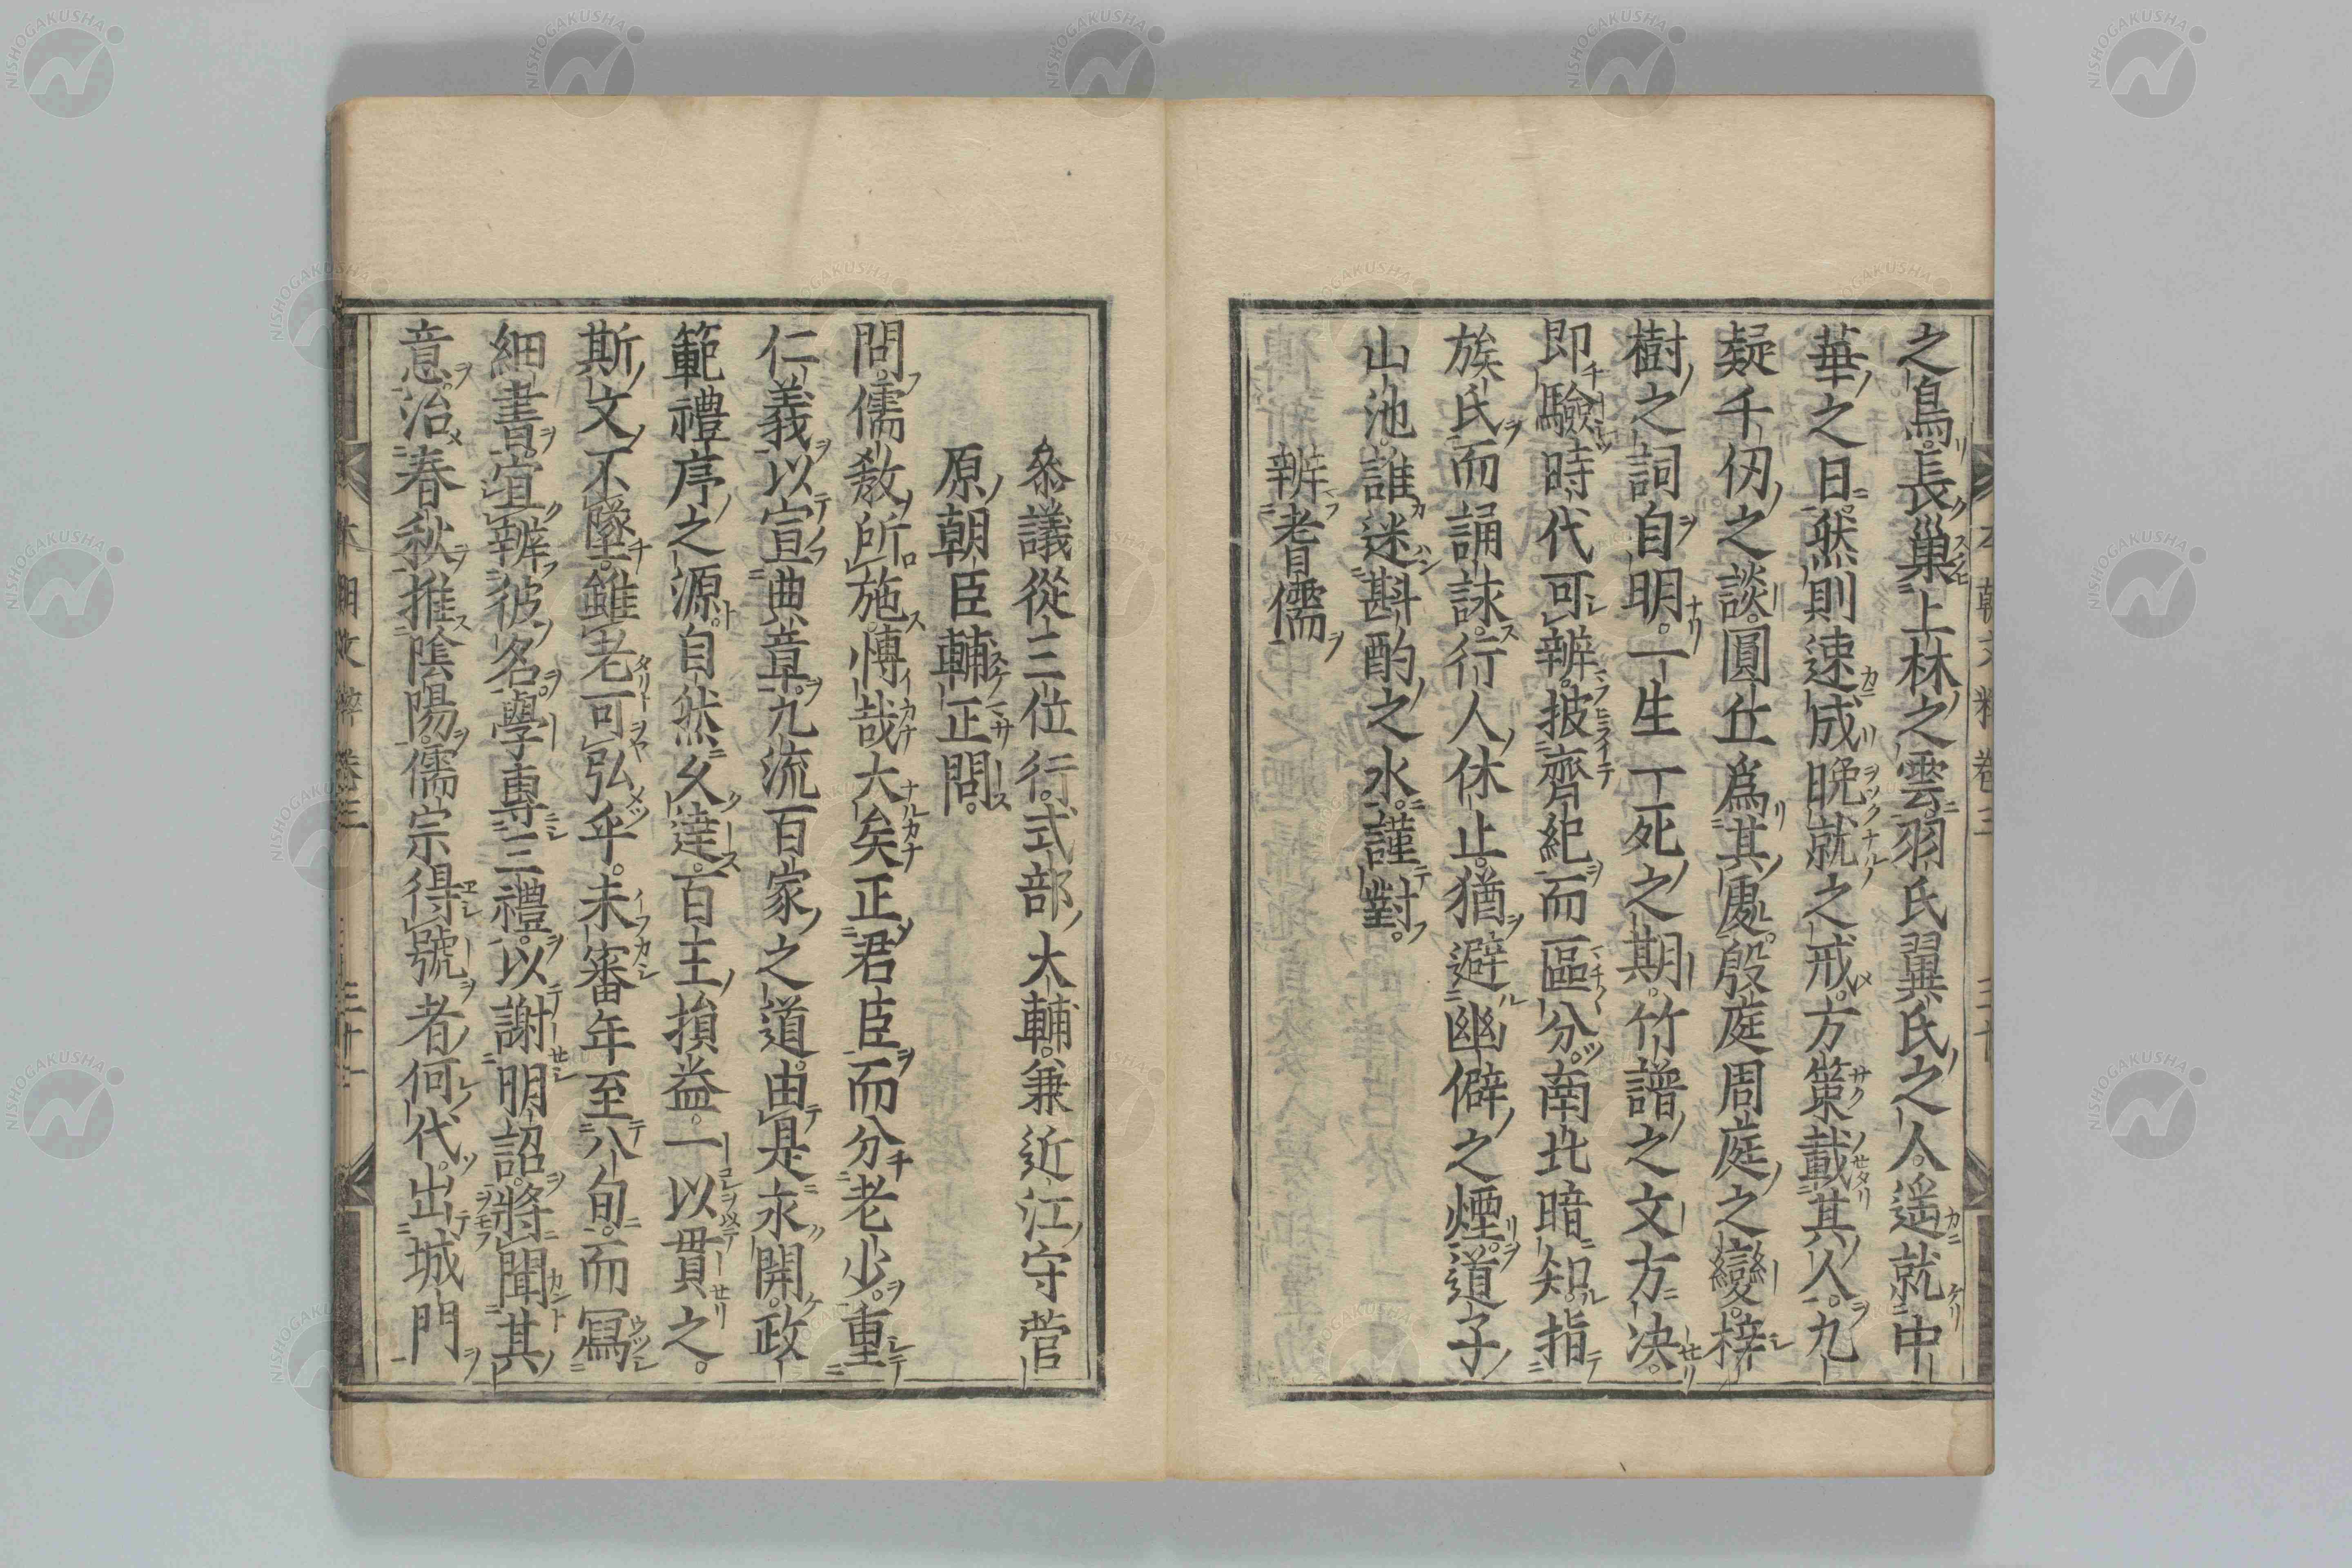 之鳥。長巢上林之雲。羽氏翼氏之人。遥就中
華之日。然則速成晩就之戒。方策載其人。九
疑千仞之談。圓丘爲其處。殷庭周庭之變。梓
樹之詞自明。一生一死之期。竹譜之文方决。
即驗時代可辨。披齊紀而區分。南北暗知。指
族氏而誦詠。行人休止。猶避幽僻之煙。道子
山池。誰迷斟酌之水。謹對。
辨耆儒
參議從三位行式部大輔。兼近江守菅
原朝臣輔正問。
問。儒敎所施。愽哉大矣。正君臣而分老少。重
仁義以宣典章。九流百家之道。由是永開。政
範禮序之源。自然久達。百王損益。一以貫之。
斯文不墜。雖老可弘乎。未審年至八旬。而寫
細書。宣辨彼名。學專三禮。以謝明詔。將聞其
意。治春秋推陰陽。儒宗得號者何代。出城門
本朝文粹卷三
三十